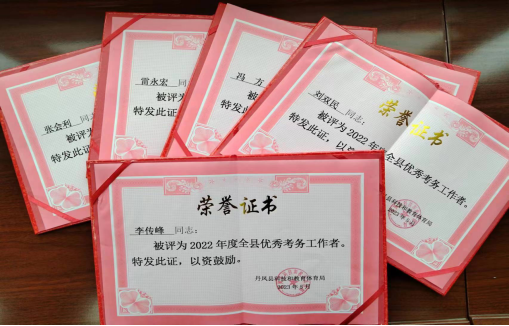 张会利 同志：
被评为
特发此证
雷永宏 同志
被评为2022
特发此证，以资
冯 方
被评
特发此证
荣誉证书
刘双民 同志：
被评为2022年度全县优秀考务工作者。
特发此证，以资
荣誉证书
李传峰 同志：
被评为2022年度全县优秀考务工作者。
特发此证，以资鼓励。
丹凤县科技和教育体育局